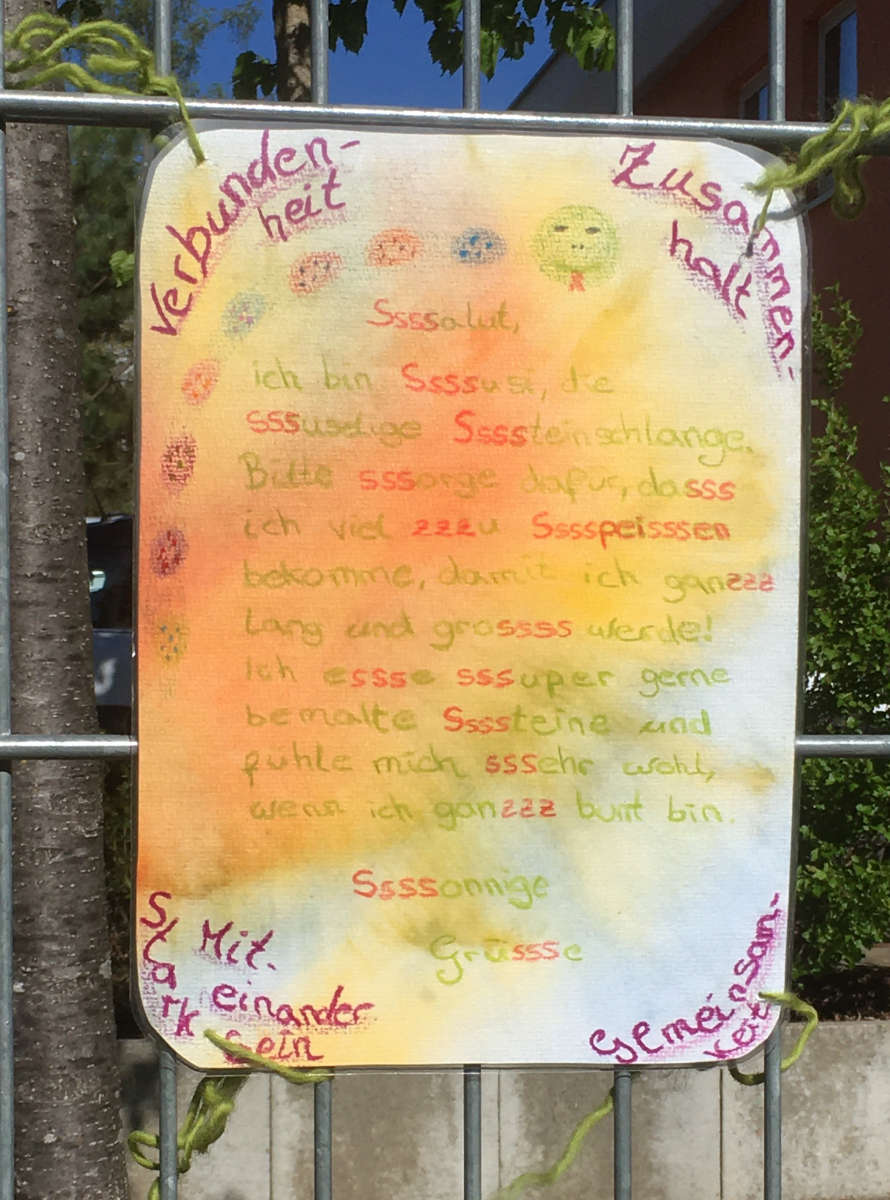 Verbunden-
heit
Zusammen-
halt
Ssssalut,
ich bin Ssssusi, die
sssusdige Ssssteinschlange.
Bitte sssorge dafür, dasss
ich viel zzzu Sssspeisssen
bekomme, damit ich ganzzz
lang und grossss werde!
Ich essse sssuper gerne
bemalte Ssssteine und
fühle mich sssehr wohl,
wenn ich ganzzz bunt bin.
Ssssonnige
Grüssse
Stark
Mit.
einander
Sein
Gemeinsam-
keit